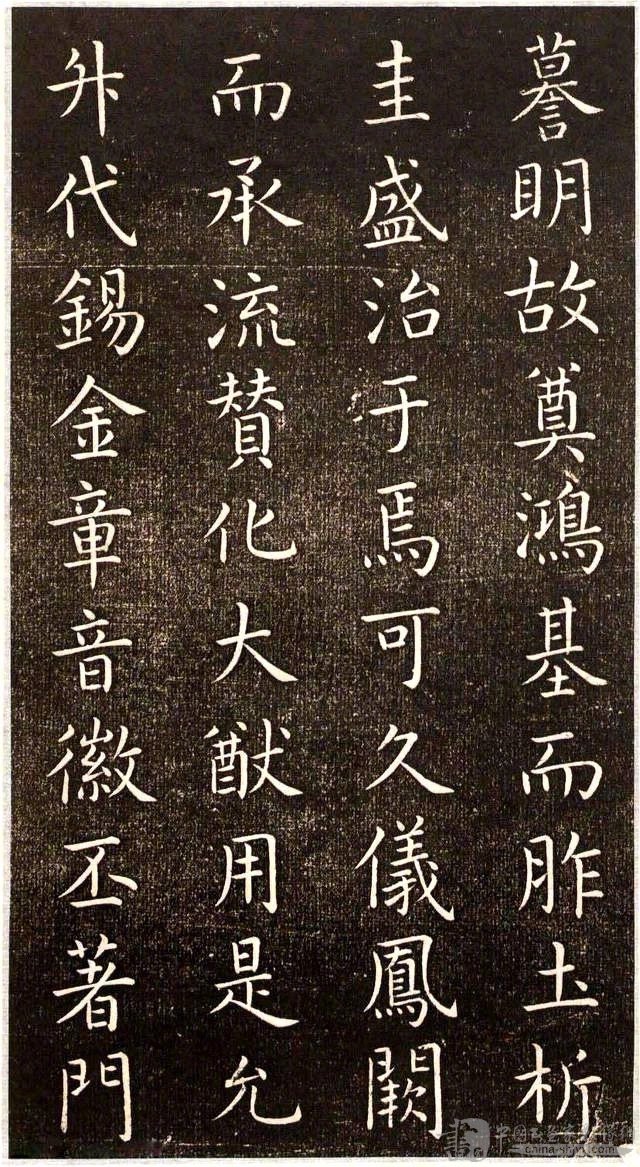 謩明故奠鴻基而胙土析
圭盛治于焉可久儀鳳闕
而承流賛化大猷用是允
升代錫金章音徽丕著門
china-shufa.com